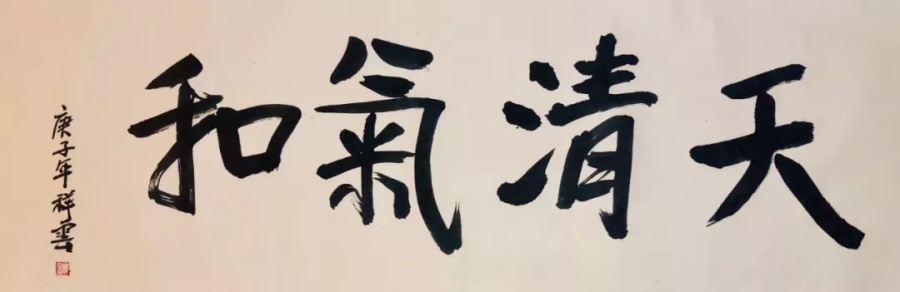 天清氣和
庚子年祥雲